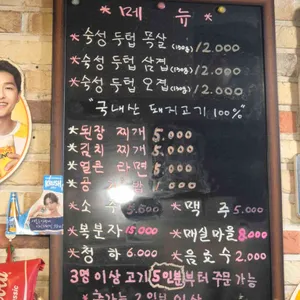 * 메 뉴 *
* 숙성 두텁 목살 (150g) 12.000
* 숙성 두텁 삼겹 (150g) 12.000
* 숙성 두텁 오겹 (150g) 12.000
"국내산 돼지고기 100%"
* 된장 찌개 5.000
* 김치 찌개 5.000
* 얼큰 라면 5.000
* 공
* 소 주 5.000 * 맥 주 5.000
* 복분자 15.000 * 매실마을 8.000
* 청 하 6.000 * 음료수 2.000
3인 이상 고기 5인분부터 주문 가능